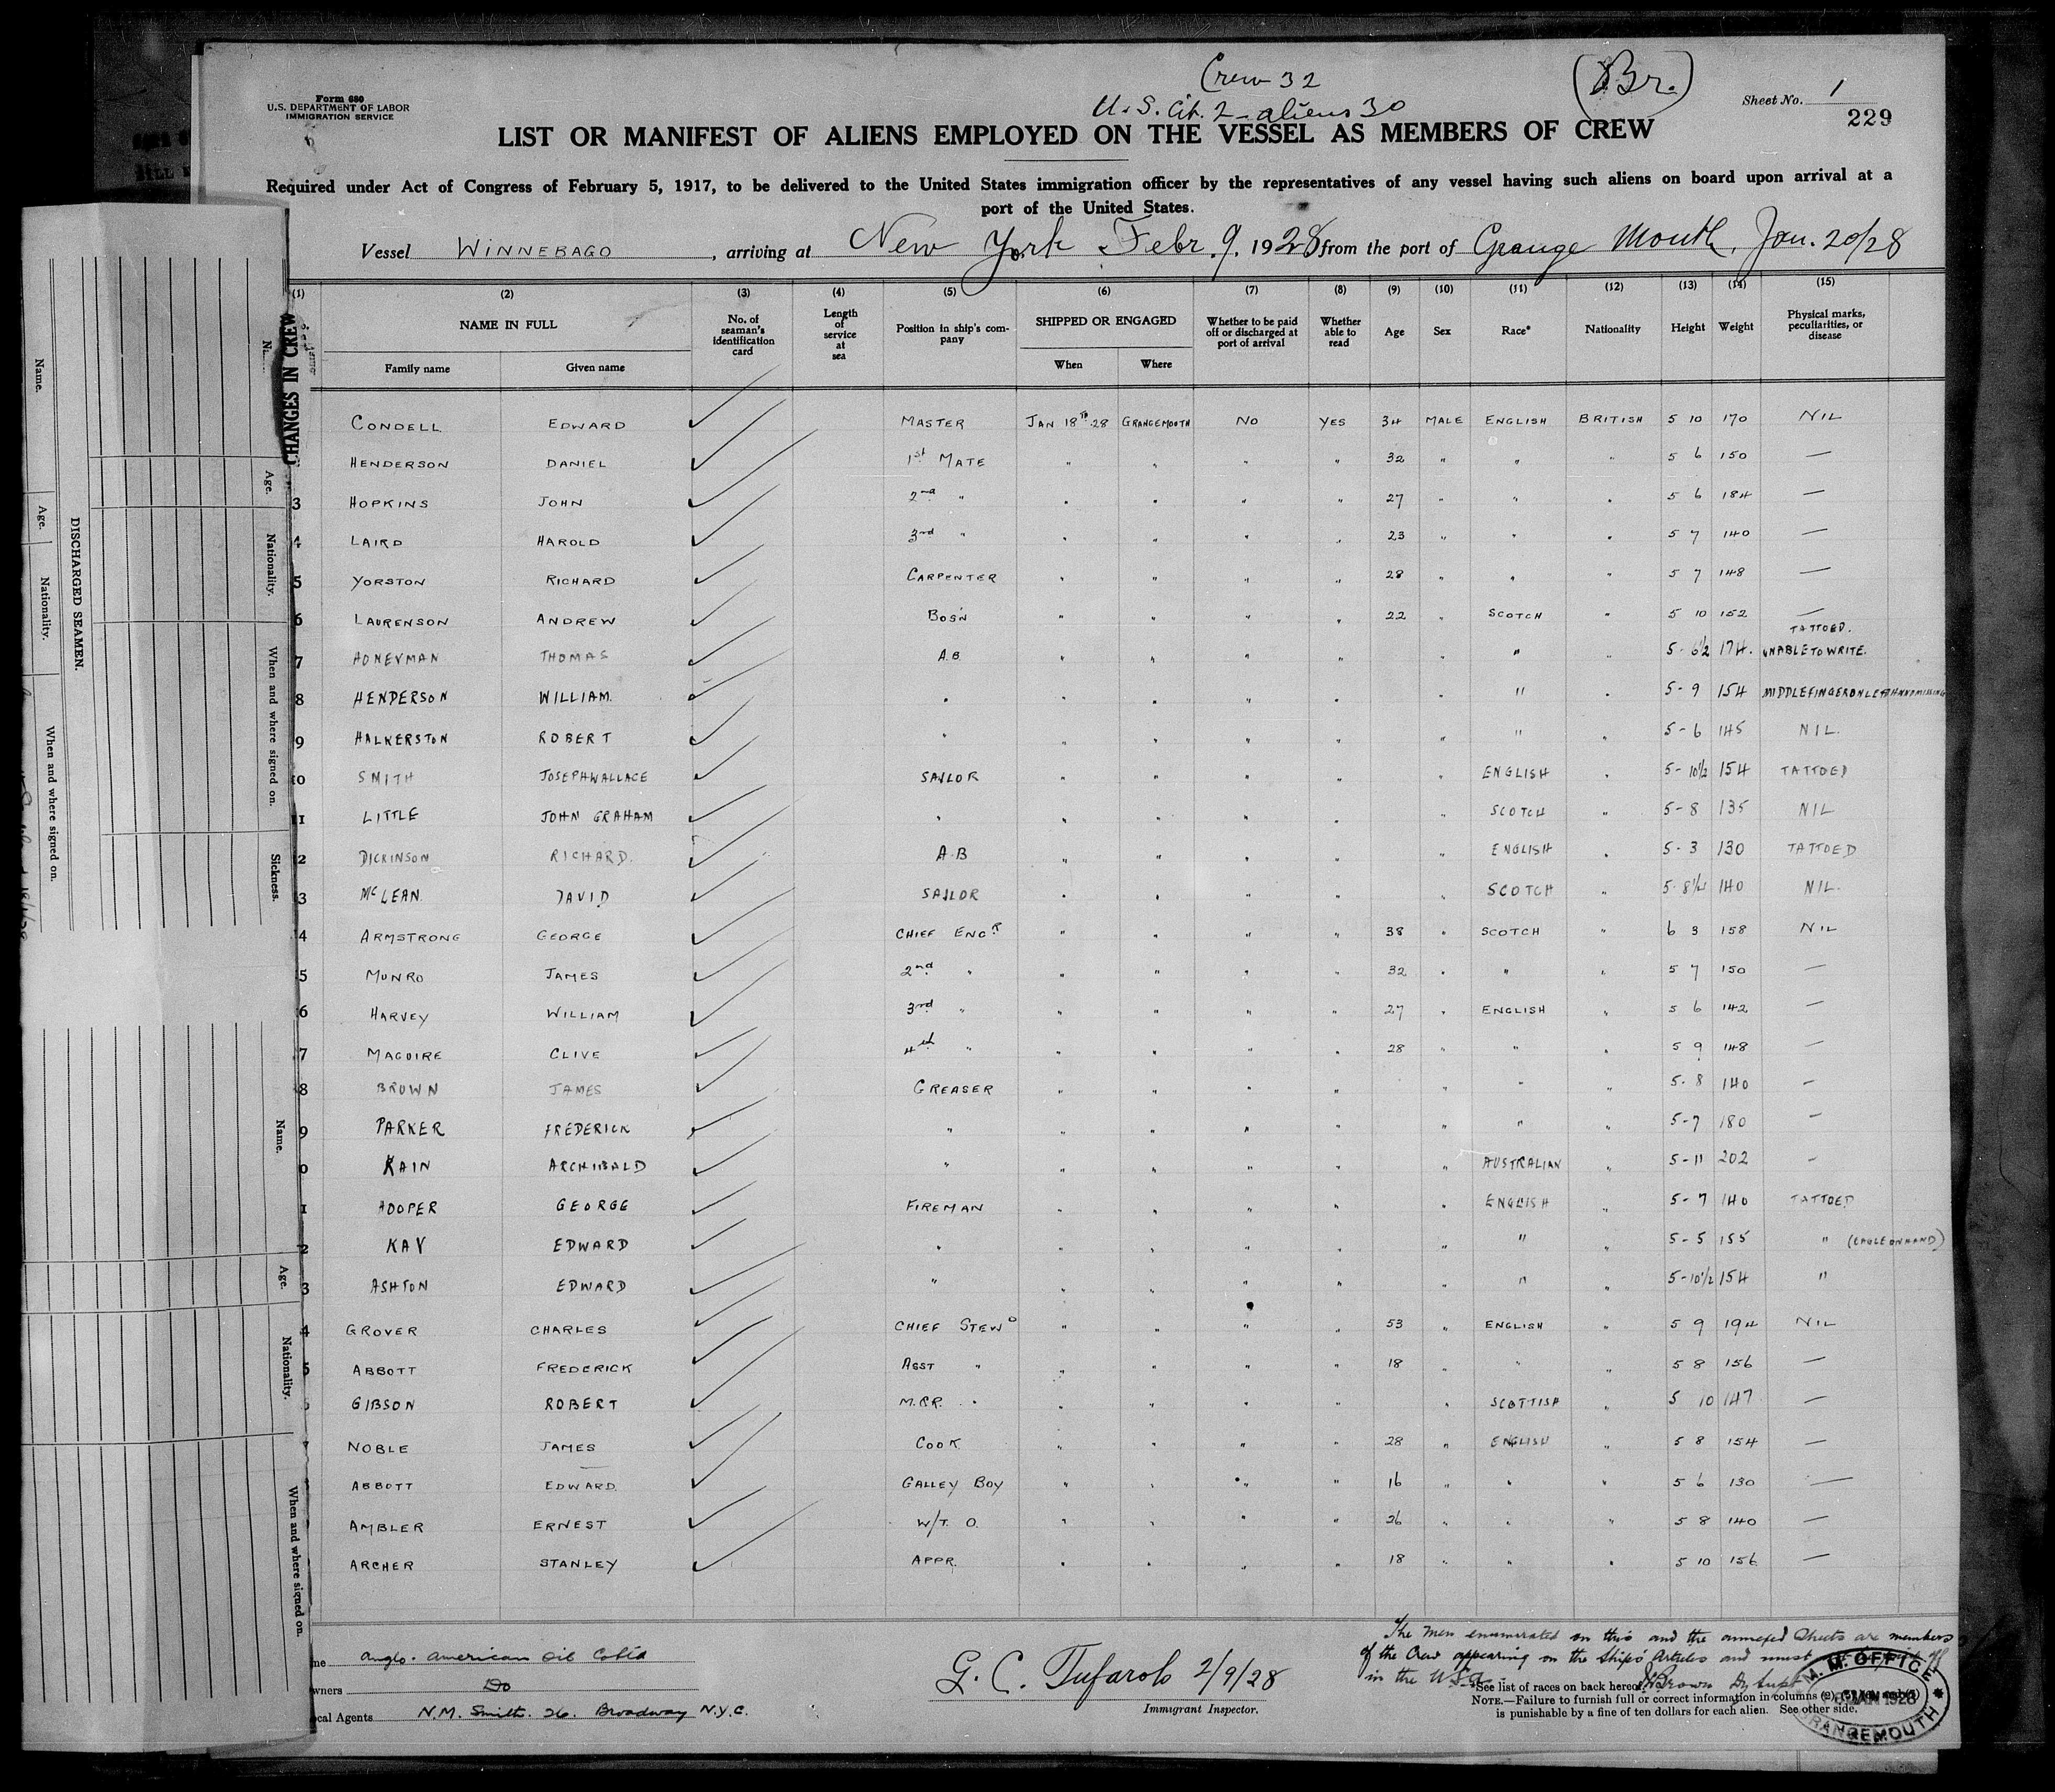 Crew 32
(Br.)
U.S. Cit. 2 - aliens 30
Form 680
U.S. DEPARTMENT OF LABOR
IMMIGRATION SERVICE
Sheet No. 1
229
LIST OR MANIFEST OF ALIENS EMPLOYED ON THE VESSEL AS MEMBERS OF CREW
Required under Act of Congress of February 5, 1917, to be delivered to the United States immigration officer by the representatives of any vessel having such aliens on board upon arrival at a
port of the United States.
Vessel WINNEBAGO, arriving at New York Febr. 9. 1928 from the port of Grange Mouth, Jan. 20/28
(1) (2) (3) (4) (5) (6) (7) (8) (9) (10) (11) (12) (13) (14) (15)
NAME IN FULL
Family name Given name
No. of seaman's identification card
Length of service at sea
Position in ship's company
SHIPPED OR ENGAGED
When Where
Whether to be paid off or discharged at port of arrival
Whether able to read
Age Sex Race* Nationality Height Weight
Physical marks, peculiarities, or disease
CONDELL EDWARD MASTER JAN 18TH 28 GRANGEMOUTH NO YES 34 MALE ENGLISH BRITISH 5 10 170 NIL
HENDERSON DANIEL 1st MATE " " " " 32 " " " 5 6 150 —
3 HOPKINS JOHN 2nd " " " " " 27 " " " 5 6 184 —
4 LAIRD HAROLD 3rd " " " " " 23 " " " 5 7 140 —
5 YORSTON RICHARD CARPENTER " " " " 28 " " " 5 7 148 —
6 LAURENSON ANDREW BOS'N " " " " 22 " SCOTCH " 5 10 152 —
7 HONEYMAN THOMAS A.B. " " " " " " " 5-6½ 174. TATTOED. UNABLE TO WRITE.
8 HENDERSON WILLIAM. " " " " " " " " 5-9 154 MIDDLE FINGER ON LEFT HAND MISSING
9 HALKERSTON ROBERT " " " " " " " " 5-6 145 NIL.
10 SMITH JOSEPH WALLACE SAILOR " " " " " ENGLISH " 5-10½ 154 TATTOED
11 LITTLE JOHN GRAHAM " " " " " " SCOTCH " 5-8 135 NIL
2 DICKINSON RICHARD. A.B " " " " " ENGLISH " 5-3 130 TATTOED
3 McLEAN. DAVID SAILOR " " " " " SCOTCH " 5-8½ 140 NIL.
4 ARMSTRONG GEORGE CHIEF ENGR " " " " 38 " SCOTCH " 6 3 158 NIL
5 MUNRO JAMES 2nd " " " " " 32 " " " 5 7 150 —
6 HARVEY WILLIAM 3rd " " " " " 27 " ENGLISH " 5 6 142 —
7 MAGUIRE CLIVE 4th " " " " " 28 " " " 5 9 148 —
8 BROWN JAMES GREASER " " " " " " " 5-8 140 —
9 PARKER FREDERICK " " " " " " " " 5-7 180 —
0 KAIN ARCHIBALD " " " " " " AUSTRALIAN " 5-11 202 —
1 HOOPER GEORGE FIREMAN " " " " " ENGLISH " 5-7 140 TATTOED
2 KAY EDWARD " " " " " " " " 5-5 155 " (EAGLE ON HAND)
3 ASHTON EDWARD " " " " " " " " 5-10½ 154 "
4 GROVER CHARLES CHIEF STEWD " " " " 53 " ENGLISH " 5 9 194 NIL
5 ABBOTT FREDERICK ASST " " " " " 18 " " " 5 8 156 —
GIBSON ROBERT M.R.R. " " " " " " SCOTTISH " 5 10 147 —
NOBLE JAMES COOK " " " " 28 " ENGLISH " 5 8 154 —
ABBOTT EDWARD. GALLEY BOY " " " " 16 " " " 5 6 130 —
AMBLER ERNEST W/T. O. " " " " 26 " " " 5 8 140 —
ARCHER STANLEY APPR. " " " " 18 " " " 5 10 156 —
Anglo-American Oil Co Ltd
wners Do
cal Agents N.M. Smith. 26. Broadway N.Y.C.
G. C. Tufarolo 2/9/28
Immigrant Inspector.
The men enumerated on this and the annexed Sheets are members
of the Crew appearing on the Ships' Articles and must
in the U.S.A.
Brown Dy Supt
*See list of races on back hereof.
NOTE.—Failure to furnish full or correct information in columns
is punishable by a fine of ten dollars for each alien. See other side.
M.M. OFFICE
JAN 1928
GRANGEMOUTH
CHANGES IN CREW
DISCHARGED SEAMEN.
Name.
Age.
Nationality.
When and where signed on.
Age.
Nationality.
When and where signed on.
Sickness.
Name.
Age.
Nationality.
When and where signed on.